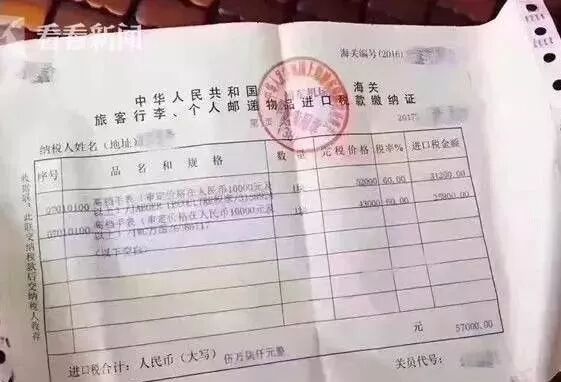 看看新闻
海关编号(2016)
中华人民共和国 海关
旅客行李、个人邮递物品进口税款缴纳证
2017
纳税人姓名(地址)
序号 品名和规格 数量 完税价格 税率% 进口税金额
07010100 高档手表(审定价格在人民币10000元及 1块 52000 60.00 31200.00
以上)/
07010100 高档手表(审定价格在人民币10000元及 1块 43000 60.00 25800.00
以上)/
(以下空白)
元 57000.00
进口税合计:人民币(大写) 伍万柒仟元整
关员代号:
收据联:此联交纳税款后交纳税人收存